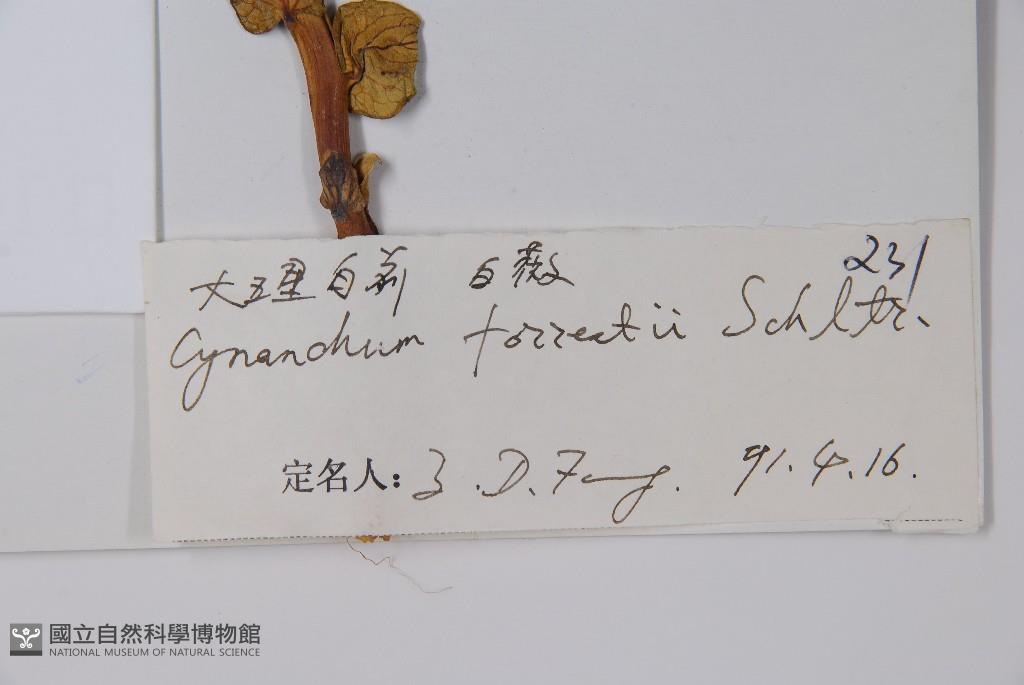 231
白薇
Cynanchum forrestii Schltr.
定名人: Z.D.Fang. 91.4.16.
國立自然科學博物館
NATIONAL MUSEUM OF NATURAL SCIENCE